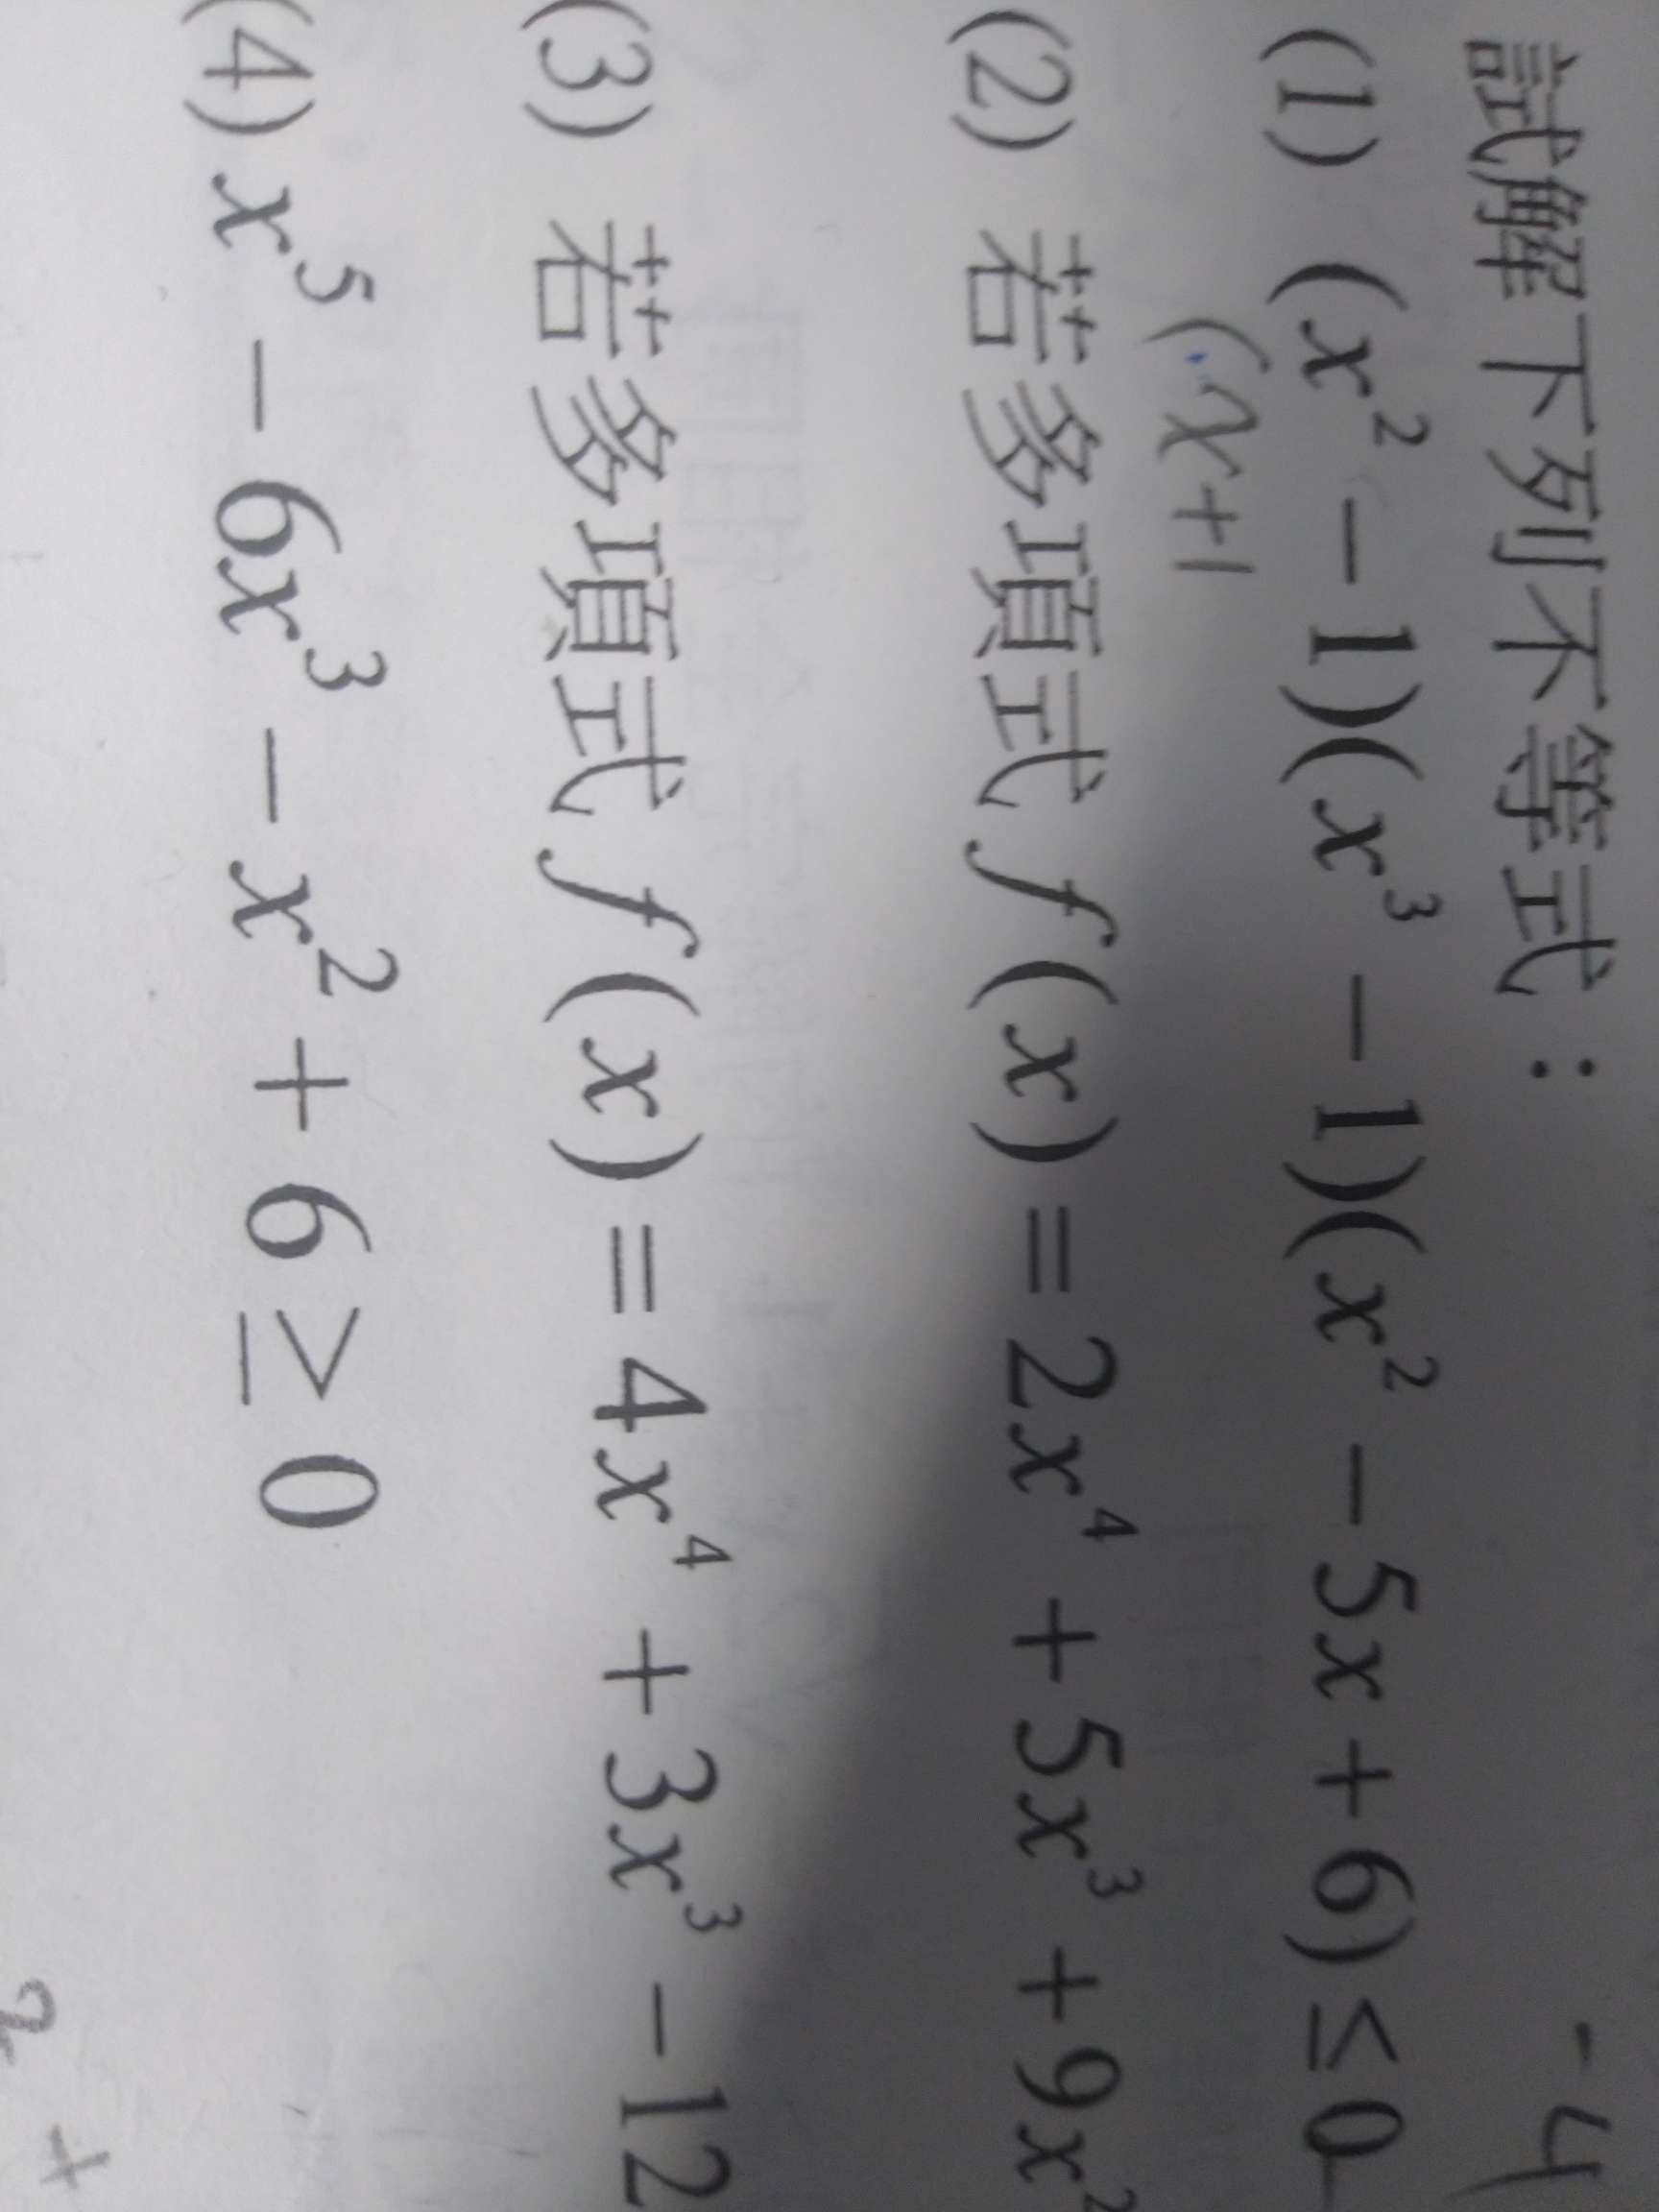 試解下列不等式：
-4
(1) (x² - 1)(x³ - 1)(x² - 5x + 6) ≤ 0
(x+1
(2) 若多項式 f(x) = 2x⁴ + 5x³ + 9x²
(3) 若多項式 f(x) = 4x⁴ + 3x³ - 12
(4) x⁵ - 6x³ - x² + 6 ≥ 0
+